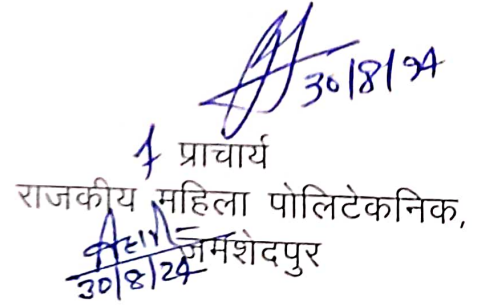 30/8/24
प्राचार्य
राजकीय महिला पोलिटेकनिक,
जमशेदपुर
30/8/24